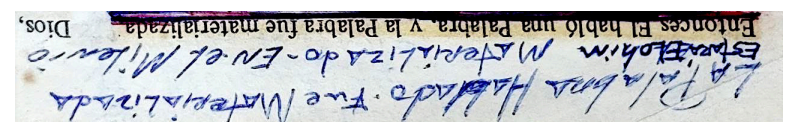 LA Palabra Hablado. Fue Materializada
Elohim Materializado - EN-el Milenio
Entonces El habló una Palabra, y la Palabra fue materializada Dios,